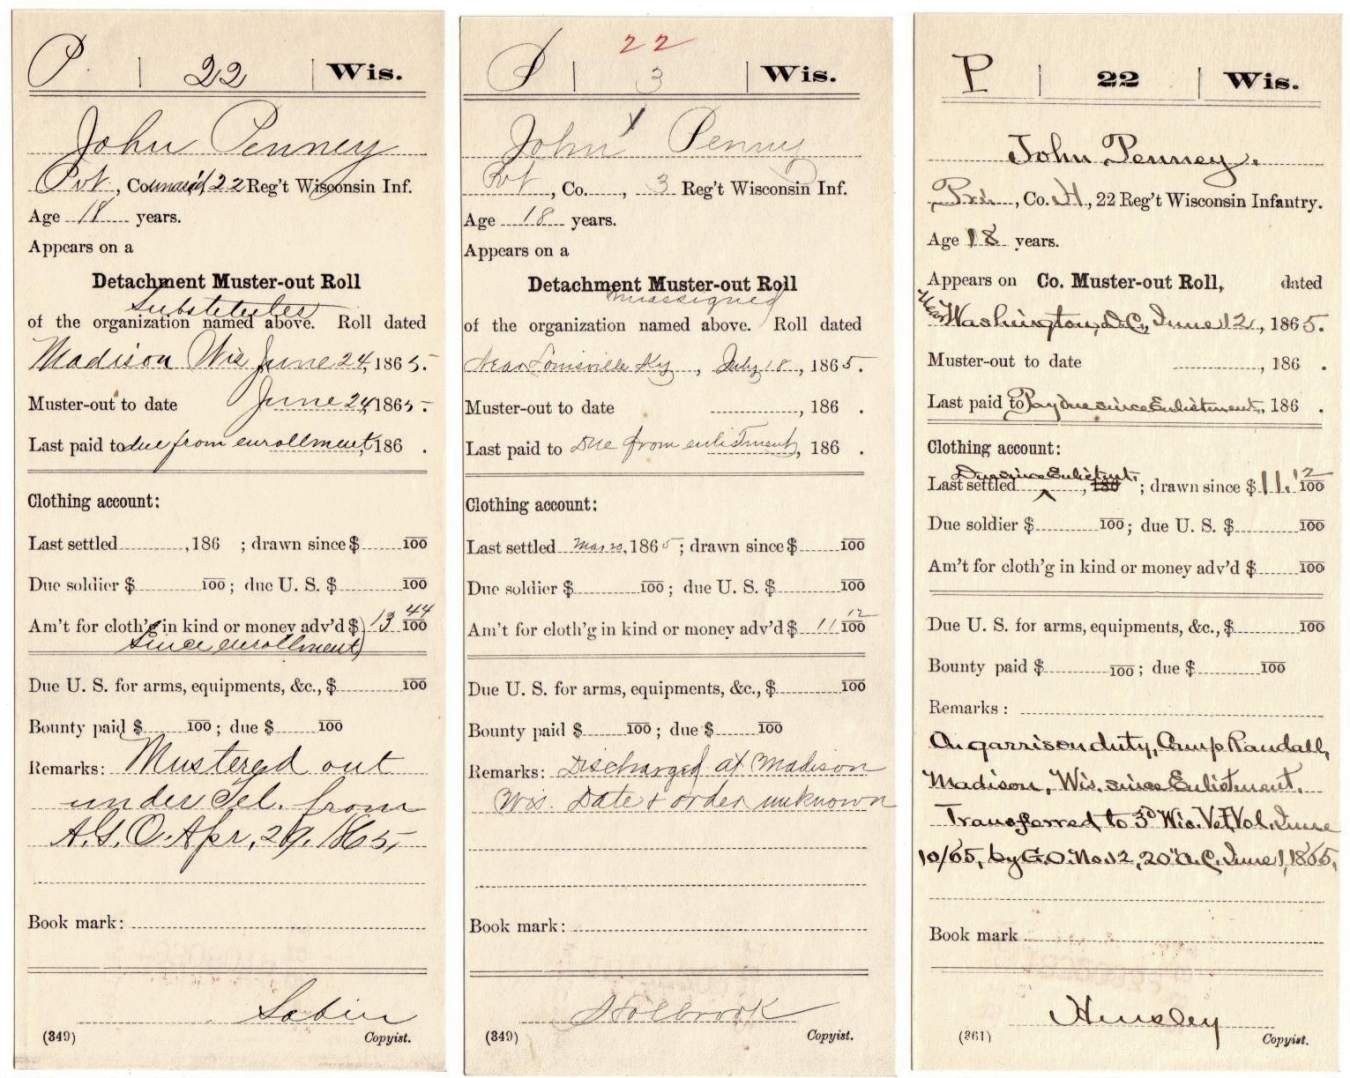 P. | 22 | Wis.
John Penney
Pvt, Co. unas'd, 22 Reg't Wisconsin Inf.
Age 18 years.
Appears on a
Detachment Muster-out Roll
Substitutes
of the organization named above. Roll dated
Madison Wis June 24, 1865.
Muster-out to date June 24, 1865.
Last paid to due from enrollment, 186 .
Clothing account:
Last settled , 186 ; drawn since $ 100
Due soldier $ 100 ; due U. S. $ 100
Am't for cloth'g in kind or money adv'd $ 13 44/100
Since enrollment
Due U. S. for arms, equipments, &c., $ 100
Bounty paid $ 100 ; due $ 100
Remarks: Mustered out
under Tel. from
A.G.O. Apr, 29, 1865,
Book mark:
Sabin
(349) Copyist.
22
P | 3 | Wis.
John Penney
Pvt, Co. , 3 Reg't Wisconsin Inf.
Age 18 years.
Appears on a
Detachment Muster-out Roll
unassigned
of the organization named above. Roll dated
Near Louisville Ky, July 18, 1865.
Muster-out to date , 186 .
Last paid to Due from enlistment, 186 .
Clothing account:
Last settled Mar 20, 1865 ; drawn since $ 100
Due soldier $ 100 ; due U. S. $ 100
Am't for cloth'g in kind or money adv'd $ 11 12/100
Due U. S. for arms, equipments, &c., $ 100
Bounty paid $ 100 ; due $ 100
Remarks: Discharged at Madison
Wis. Date & order unknown
Book mark:
Holbrook
(349) Copyist.
P | 22 | Wis.
John Penney.
Pri., Co. H., 22 Reg't Wisconsin Infantry.
Age 18 years.
Appears on Co. Muster-out Roll, dated
Near Washington, D.C., June 12, 1865.
Muster-out to date , 186 .
Last paid to Pay due since Enlistment, 186 .
Clothing account:
Due since Enlistmt.
Last settled , 186 ; drawn since $ 11. 12/100
Due soldier $ 100 ; due U. S. $ 100
Am't for cloth'g in kind or money adv'd $ 100
Due U. S. for arms, equipments, &c., $ 100
Bounty paid $ 100 ; due $ 100
Remarks:
On garrison duty, Camp Randall,
Madison, Wis. since Enlistment.
Transferred to 3d Wis. Vet Vol. June
10/65, by G.O. No. 12, 20" A.C. June 1, 1865,
Book mark
Hensley
(361) Copyist.